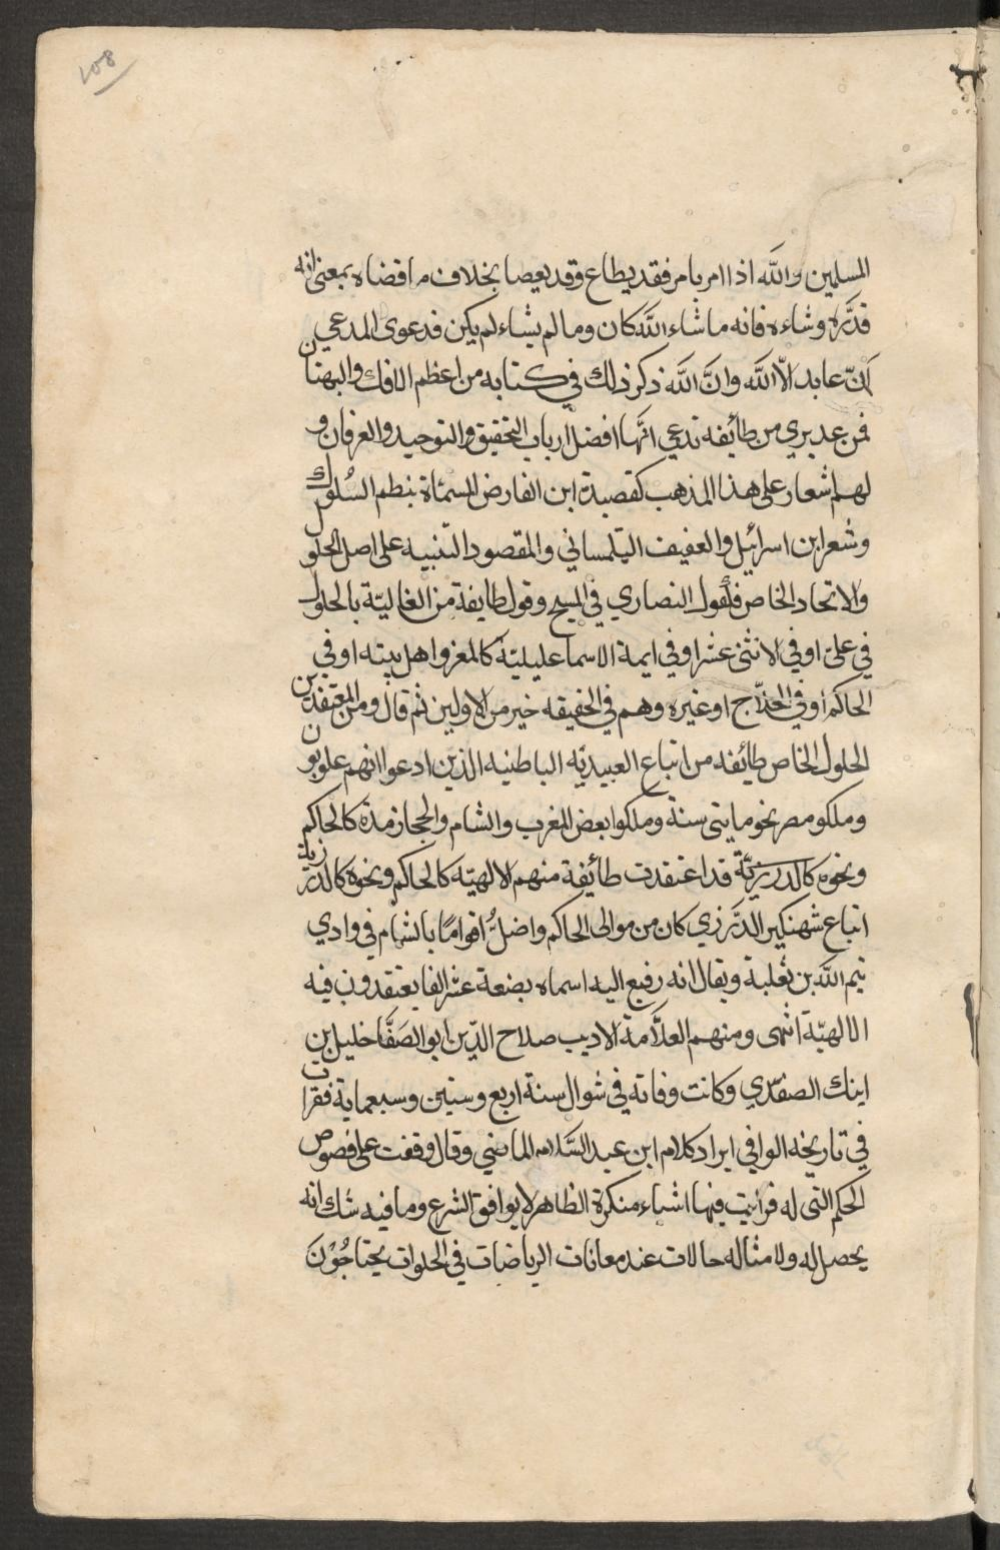 108
المسلمين والله اذا امر بامر فقد يطاع وقد يعصا بخلاف ما قضاه بمعنى انه
قدَّره وشاءه فانه ماشاء الله كان ومالم يشاء لم يكن فدعوى المدعين
انّ عابد الّا الله وانَّ الله ذكر ذلك في كتابه من اعظم الافك والبهتان
فمن عديري من طائفه تدعي انّها افضل ارباب التحقيق والتوحيد والعرفان و
لهم اشعار على هذا المذهب كقصيدة ابن الفارض المسمّاة بنظم السُلوك
وشعر ابن اسرائيل والعفيف التيلمساني والمقصود التنبيه على اصل الحلول
والاتحاد الخاص فلقول النصاري في المسيح وقول طايفة من الغاليّة بالحلول
في علي اوفي الاثنى عشر اوفي ايمة الاسماعليليّة كالمعز واهل بيته اوفي
الحاكم اوفي الحلّاج اوغيره وهم في الحقيقه خير من الاولين ثم قال ومن المعتقدين
الحلول الخاص طائفه من اتباع العبيديّه الباطنيه الذين ادعوا انهم علويون
وملكو مصر نحو مايتى سنة وملكوا بعض المغرب والشام والحجاز مدة كالحاكم
ونحوه كالدرزيّة قد اعتقدت طائفة منهم الالهيّه كالحاكم ونحوه كالدرزية
اتباع شهنكير الدَّرزي كان من موالى الحاكم واضلَّ اقوامًا بالشام في وادي
تيم الله بن ثعلبة ويقال انه رفيع اليه اسماه بضعة عشر الفا يعتقدون فيه
الالهيّة انتهى ومنهم العلَّامة الاديب صلاح الدّين ابو الصَفَّا خليل ابن
ايبك الصفدي وكانت وفاته في شوال سنة اربع وستين وسبعماية فقرات
في تاريخه الوافي ايراد كلام ابن عبد السَّلام الماضي وقال وقفت على فصوص
الحكم التى له فرايت فيها اشياء منكرة الظاهر لايوافق الشرع ومافيه شك انه
يحصل له ولامثاله حالات عند معانات الرياضات في الخلوات يحتاجُوْنَ